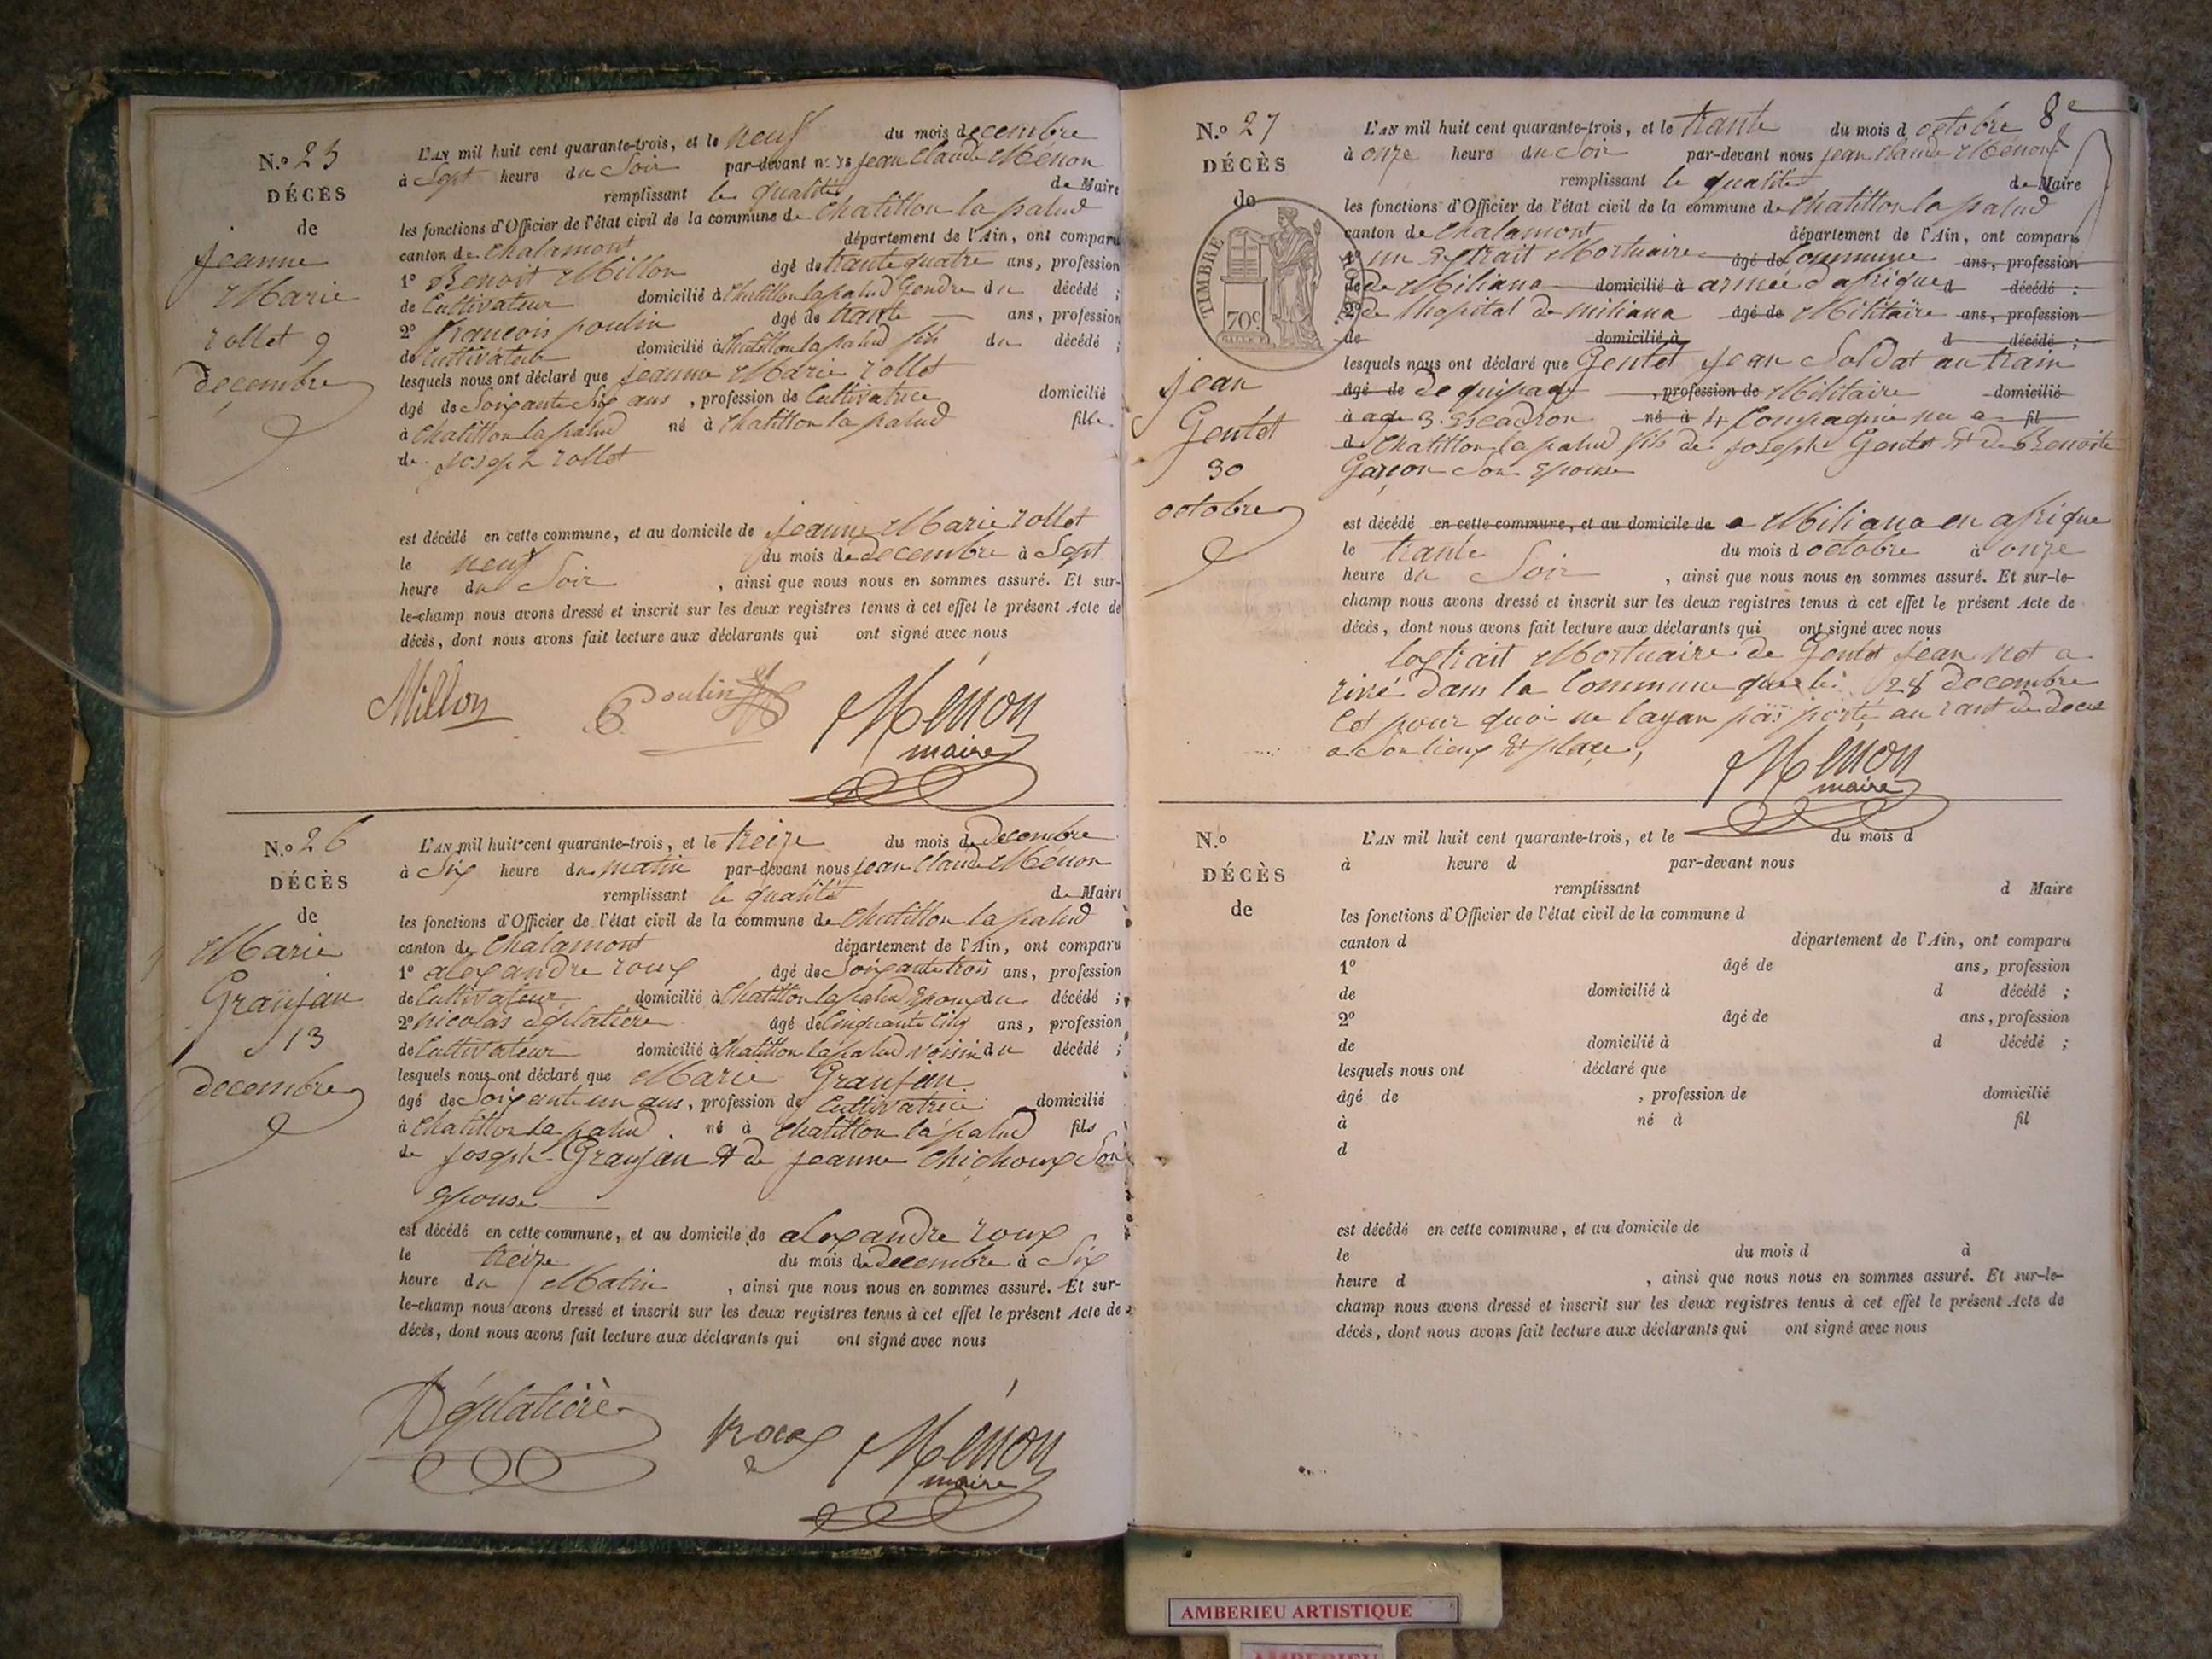 N.º 25
DÉCÈS
de
jeanne
Marie
rollet 9
decembre
L'AN mil huit cent quarante-trois, et le neuf du mois decembre
à Sept heure du Soir par-devant nous jean Claude Ménon
remplissant le qualité de Maire
les fonctions d'Officier de l'état civil de la commune de Chatillon la palud
canton de Chalamont département de l'Ain, ont comparu
1º Benoit Millon âgé de trante quatre ans, profession
de Cultivateur domicilié à Chatillon la palud Gendre du décédé ;
2º françois poulin âgé de trante ans, profession
de Cultivateur domicilié à Chatillon la palud fils du décédé ;
lesquels nous ont déclaré que jeanne Marie rollet
âgé de Soixante Six ans , profession de Cultivatrice domicilié
à Chatillon la palud né à Chatillon la palud fille
de joseph rollet
est décédé en cette commune, et au domicile de jeanne Marie rollet
le neuf du mois de decembre à Sept
heure du Soir , ainsi que nous nous en sommes assuré. Et sur-
le-champ nous avons dressé et inscrit sur les deux registres tenus à cet effet le présent Acte de
décès, dont nous avons fait lecture aux déclarants qui ont signé avec nous
Millon Poulin Ménon
maire
N.º 26
DÉCÈS
de
Marie
Graujan
13
decembre
L'AN mil huit cent quarante-trois, et le treize du mois de decembre
à Six heure du matin par-devant nous jean Claude Ménon
remplissant le qualité de Maire
les fonctions d'Officier de l'état civil de la commune de Chatillon la palud
canton de Chalamont département de l'Ain, ont comparu
1º alexandre roux âgé de Soixante trois ans, profession
de Cultivateur domicilié à Chatillon la palud Epoux du décédé ;
2º nicolas déplatière âgé de Cinquante Cinq ans, profession
de Cultivateur domicilié à Chatillon la palud voisin du décédé ;
lesquels nous ont déclaré que Marie Graujan
âgé de Soixante un ans, profession de Cultivatrice domicilié
à Chatillon la palud. né à Chatillon la palud fils
de joseph Graujan et de jeanne Chichoux Son
epouse
est décédé en cette commune, et au domicile de alexandre roux
le treize du mois de decembre à Six
heure du Matin , ainsi que nous nous en sommes assuré. Et sur-
le-champ nous avons dressé et inscrit sur les deux registres tenus à cet effet le présent Acte de
décès, dont nous avons fait lecture aux déclarants qui ont signé avec nous
Déplatière Roux Ménon
maire
8e
N.º 27
DÉCÈS
de
TIMBRE ROYAL
70c
jean
Gentet
30
octobre
L'AN mil huit cent quarante-trois, et le trante du mois d octobre
à onze heure du Soir par-devant nous jean Claude Ménon
remplissant le qualité de Maire
les fonctions d'Officier de l'état civil de la commune de Chatillon la palud
canton de Chalamont département de l'Ain, ont comparu
1º un Extrait Mortuaire âgé de Commune ans, profession
de de Miliana domicilié à armée d afrique d décédé ;
2º de lhopital de miliana âgé de Militaire ans, profession
de domicilié à d décédé ;
lesquels nous ont déclaré que Gentet jean Soldat au train
âgé de de quipage , profession de Militaire domicilié
à 3. Escadron né à 4 Compagnie né a fil
d Chatillon la palud fils de joseph Gentet Et de Benoite
Garçon Son Epouse
est décédé en cette commune, et au domicile de a Miliana en afrique
le trante du mois d octobre à onze
heure du Soir , ainsi que nous nous en sommes assuré. Et sur-le-
champ nous avons dressé et inscrit sur les deux registres tenus à cet effet le présent Acte de
décès, dont nous avons fait lecture aux déclarants qui ont signé avec nous
lextrait Mortuaire de Gentet jean net a
rivé dans la Commune que le 28 decembre
Cet pour quoi ne layan pas porté au rant de deces
a Son lieux Et place,
Ménon
maire
N.º
DÉCÈS
de
L'AN mil huit cent quarante-trois, et le du mois d
à heure d par-devant nous
remplissant d Maire
les fonctions d'Officier de l'état civil de la commune d
canton d département de l'Ain, ont comparu
1º âgé de ans, profession
de domicilié à d décédé ;
2º âgé de ans, profession
de domicilié à d décédé ;
lesquels nous ont déclaré que
âgé de , profession de domicilié
à né à fil
d
est décédé en cette commune, et au domicile de
le du mois d à
heure d , ainsi que nous nous en sommes assuré. Et sur-le-
champ nous avons dressé et inscrit sur les deux registres tenus à cet effet le présent Acte de
décès, dont nous avons fait lecture aux déclarants qui ont signé avec nous
AMBERIEU ARTISTIQUE
AMBERIEU